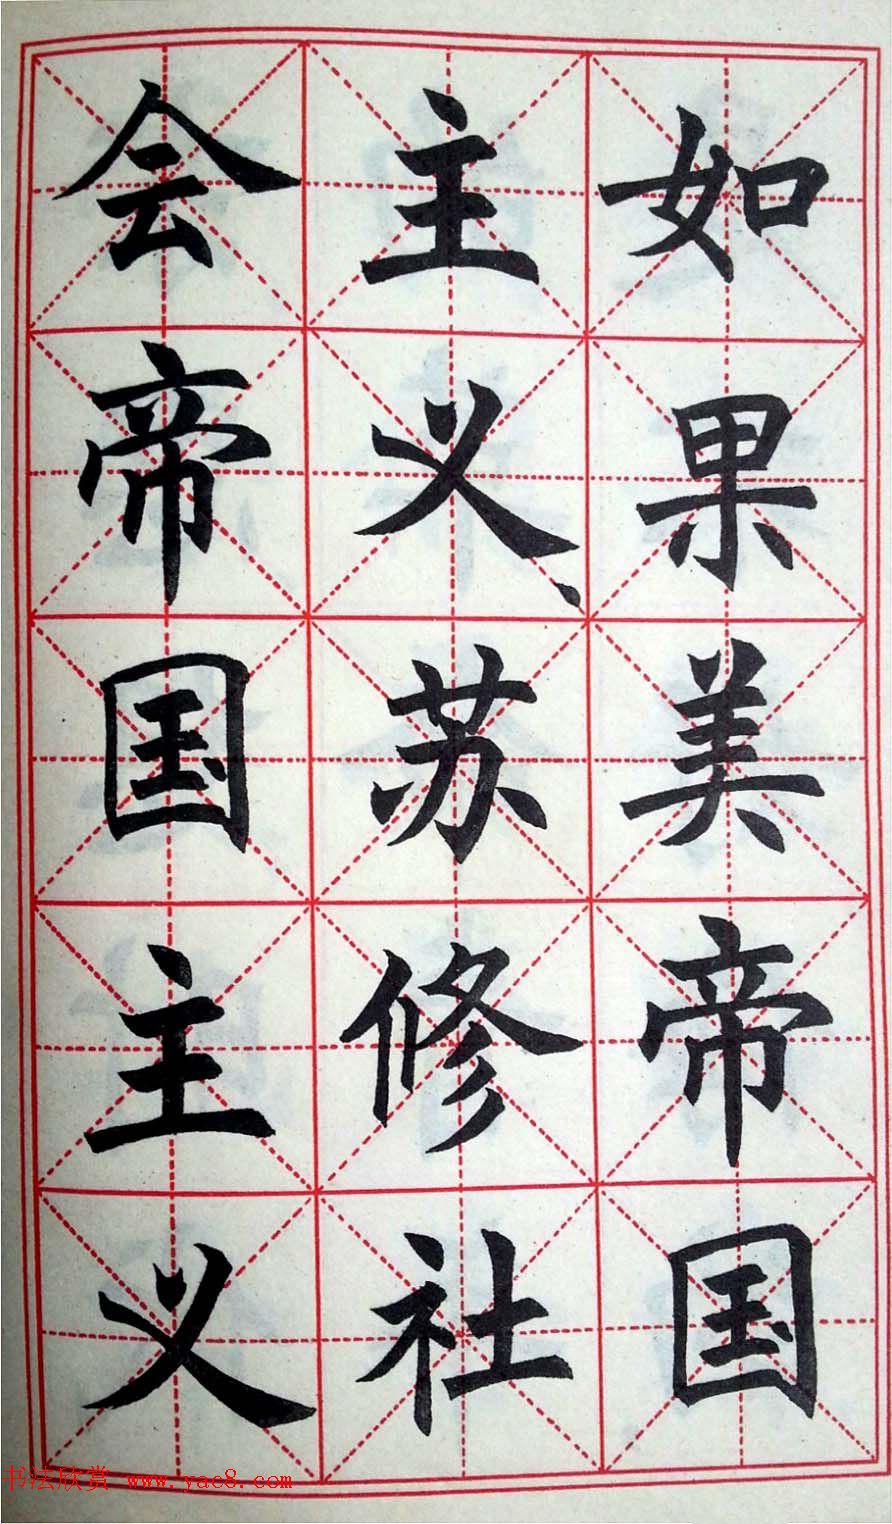 如果美帝国
主义、苏修社
会帝国主义
书法欣赏 www.yac8.com